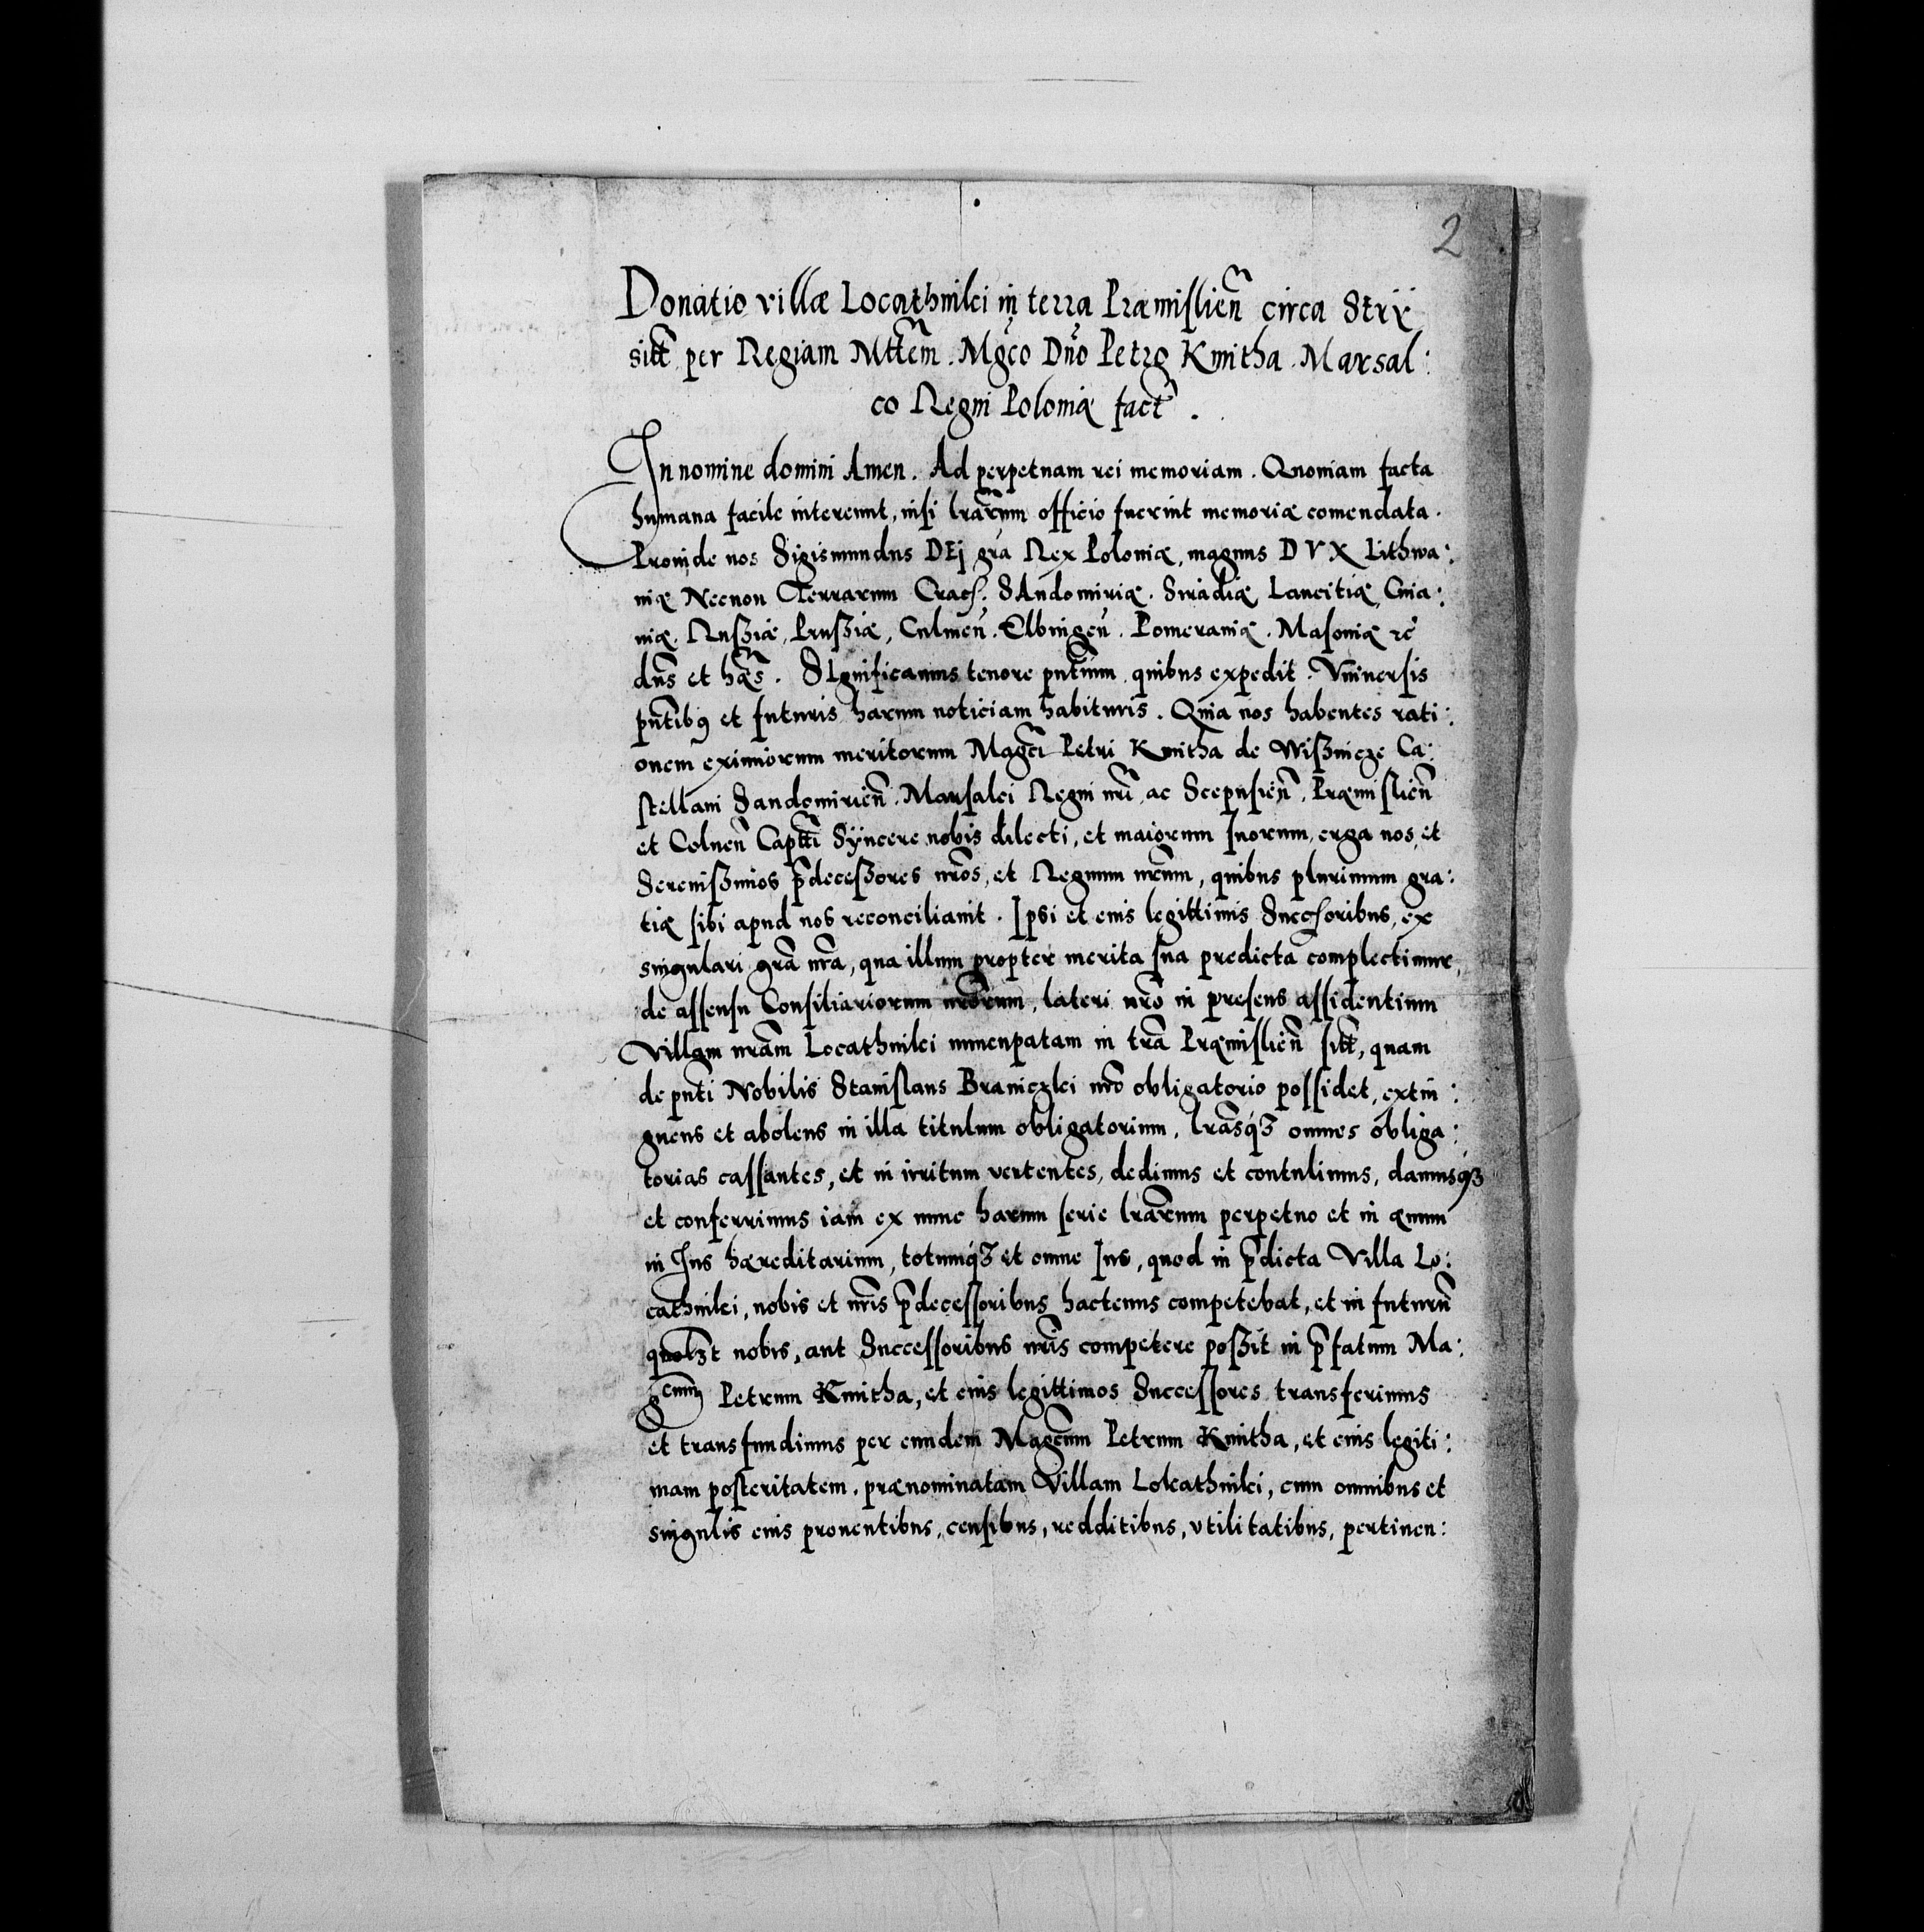 2
Donatio villæ Locathniki in terra Præmislień circa Strÿ
sitt̃ per Regiam Mttem̃. Mg̃co Dño Petro Kmitha Marsal:
co Regni Poloniæ fact̃.
In nomine domini Amen. Ad perpetuam rei memoriam. Quoniam facta
humana facile intereunt, nisi lrãrum officio fuerint memoriæ comendata.
Proinde nos Sigismundus DEj grã Rex Poloniæ, magnus DVX Lithwa:
niæ Necnon Terrarum Crac̃. SAndomiriæ. Siradiæ Lancitiæ, Cuia:
uiæ. Russiæ, Prussiæ, Culmeñ. Elbingeñ. Pomeraniæ. Masoniæ ꝛc̃
dñs et hæ̃s. SIgnificamus tenore pñtium quibus expedit. Vniuersis
pñtibꝯ et futuris harum noticiam habituris. Quia nos habentes rati:
onem eximiorum meritorum Magc̃i Petri Kmitha de Wisznicze Ca:
stellani Sandomirień. Marsalci Regni nrĩ ac Scepusień. Præmislień
et Colneñ Captt̃i Sÿncere nobis dilecti, et maiorum suorum, erga nos, et
Serenissimos p̃decessores nrõs, et Regnum nrũm, quibus plurimum gra:
tiæ sibi apud nos reconciliauit. Ipsi et eius legittimis Succesoribus, ex
singulari grã nrã, qua illum propter merita sua predicta complectimur,
de assensu Consiliariorum nrõrum, lateri nrõ in presens assidentium
Villam nrãm Locathniki nuncupatam in trã Præmislień sitt̃, quam
de pñti Nobilis Stanislaus Braniczki nrõ obligatorio possidet, extin:
guens et abolens in illa titulum obligatorium, lrãsqꝫ omnes obliga:
torias cassantes, et in irritum vertentes, dedimus et contulimus, damusqꝫ
et conferrimus iam ex nunc harum serie lrãrum perpetuo et in æuum
in Ius hæreditarium, totumqꝫ et omne Ius, quod in p̃dicta Villa Lo:
cathniki, nobis et nrĩs p̃decessoribus hactenus competebat, et in futurũ
quolꝫt nobis, aut Successoribus nrĩs competere possit in p̃fatum Ma:
gcum Petrum Kmitha, et eius legittimos Successores transferimus
et transfundimus per eundem Magcũm Petrum Kmitha, et eius legiti:
mam posteritatem. prænominatam Villam Lokathniki, cum omnibus et
singulis eius prouentibus, censibus, redditibus, vtilitatibus, pertinen: